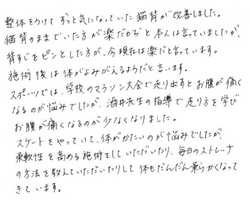 整体をうけて ずっと気になっていた猫背が改善しました。
猫背のままでいた方が楽だのぞと本人は言っていましたが、
背すじをピンとした方が、今現在は楽だと言っています。
施術後は体がよみがえるようだと言います。
スポーツでは、学校のマラソン大会で走り出すとお腹が痛く
なるのが悩みでしたが、酒井先生の指導で走り方を学び
お腹が痛くなるのが少なくなりました。
スケートをやっていて、体がかたいのが悩みでしたが、
柔軟性を高める施術をしていただいたり、毎日のストレッチ
の方法を教えていただいたりして 体もだんだん柔らかくなって
きています。